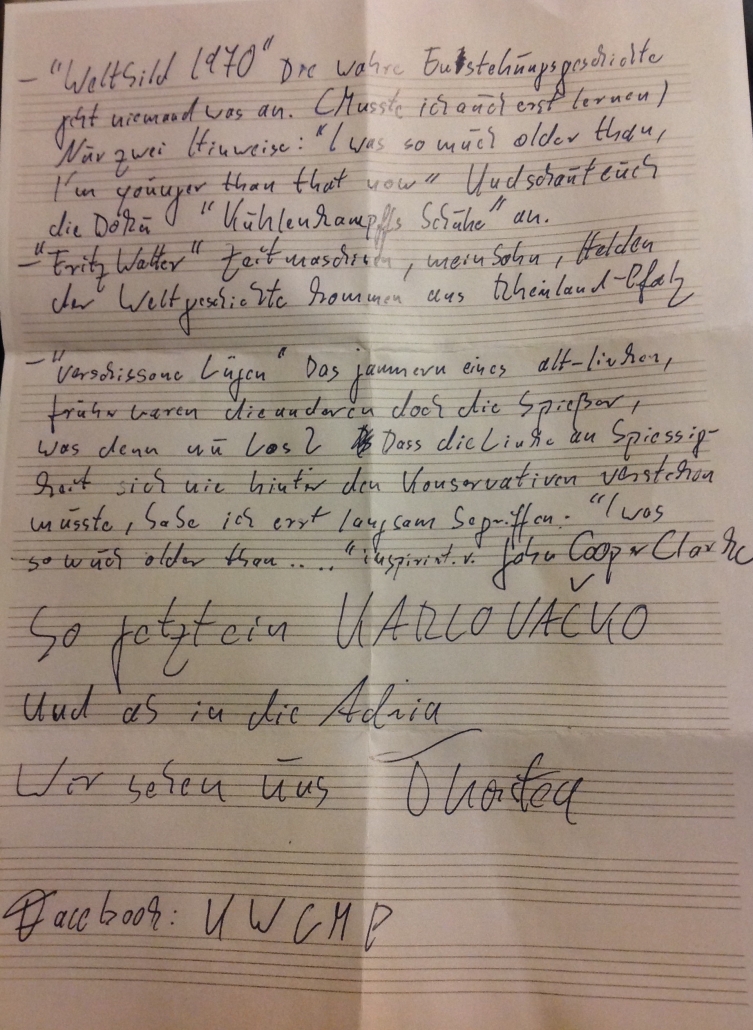 - "Weltbild 1970" Die wahre Entstehungsgeschichte
geht niemand was an. (Musste ich auch erst lernen)
Nur zwei Hinweise: "I was so much older than,
I'm younger than that now" Und schaut euch
die Doku "Kuhlenkampffs Schuhe" an.
- "Fritz Walter" Zeitmaschine, mein Sohn, Helden
der Weltgeschichte kommen aus Rheinland-Pfalz
- "Verschissene Lügen" Das jammern eines alt-linken,
früher waren die anderen doch die Spießer,
was denn nu los? Dass die Linke an Spiessig-
keit sich nie hinter den Konservativen verstecken
müsste, habe ich erst langsam begriffen. "I was
so much older than...." inspiriert v. John Cooper Clarke
So jetzt ein KARLOVAČKO
Und ab in die Adria
Wir sehen uns Thorsten
Facebook: KWCMP